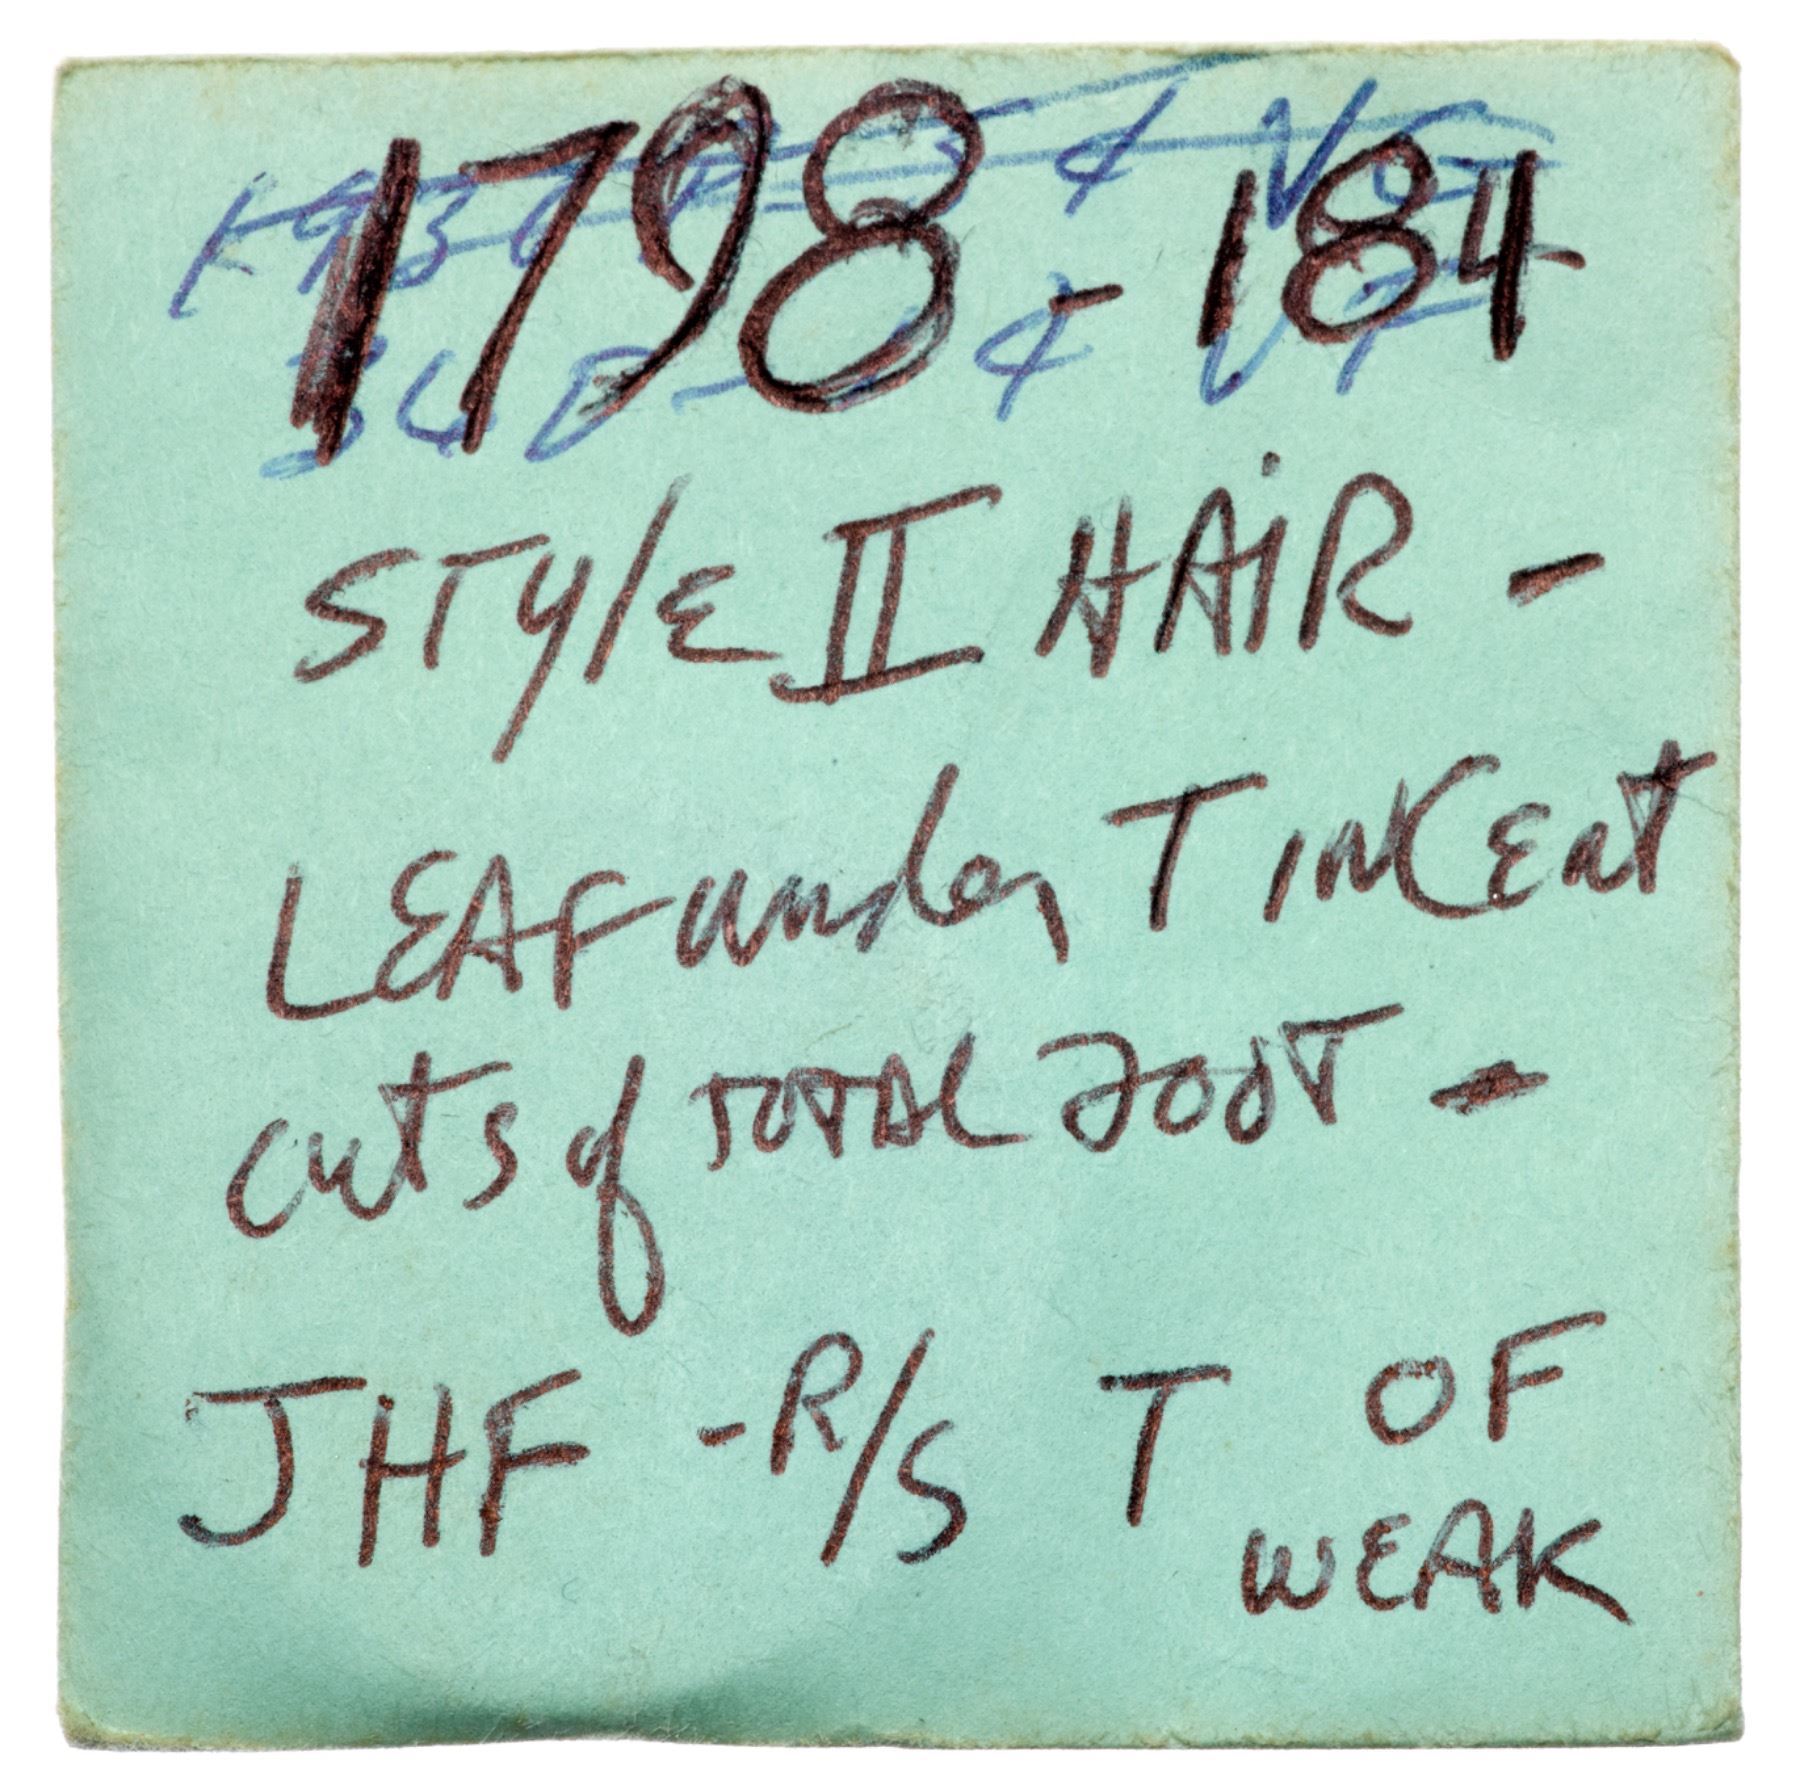 1798 - 184
STYlE II HAIR -
LEAF under T in CENT
cuts of TOTAL FOOT -
JHF - R/S T OF
WEAK